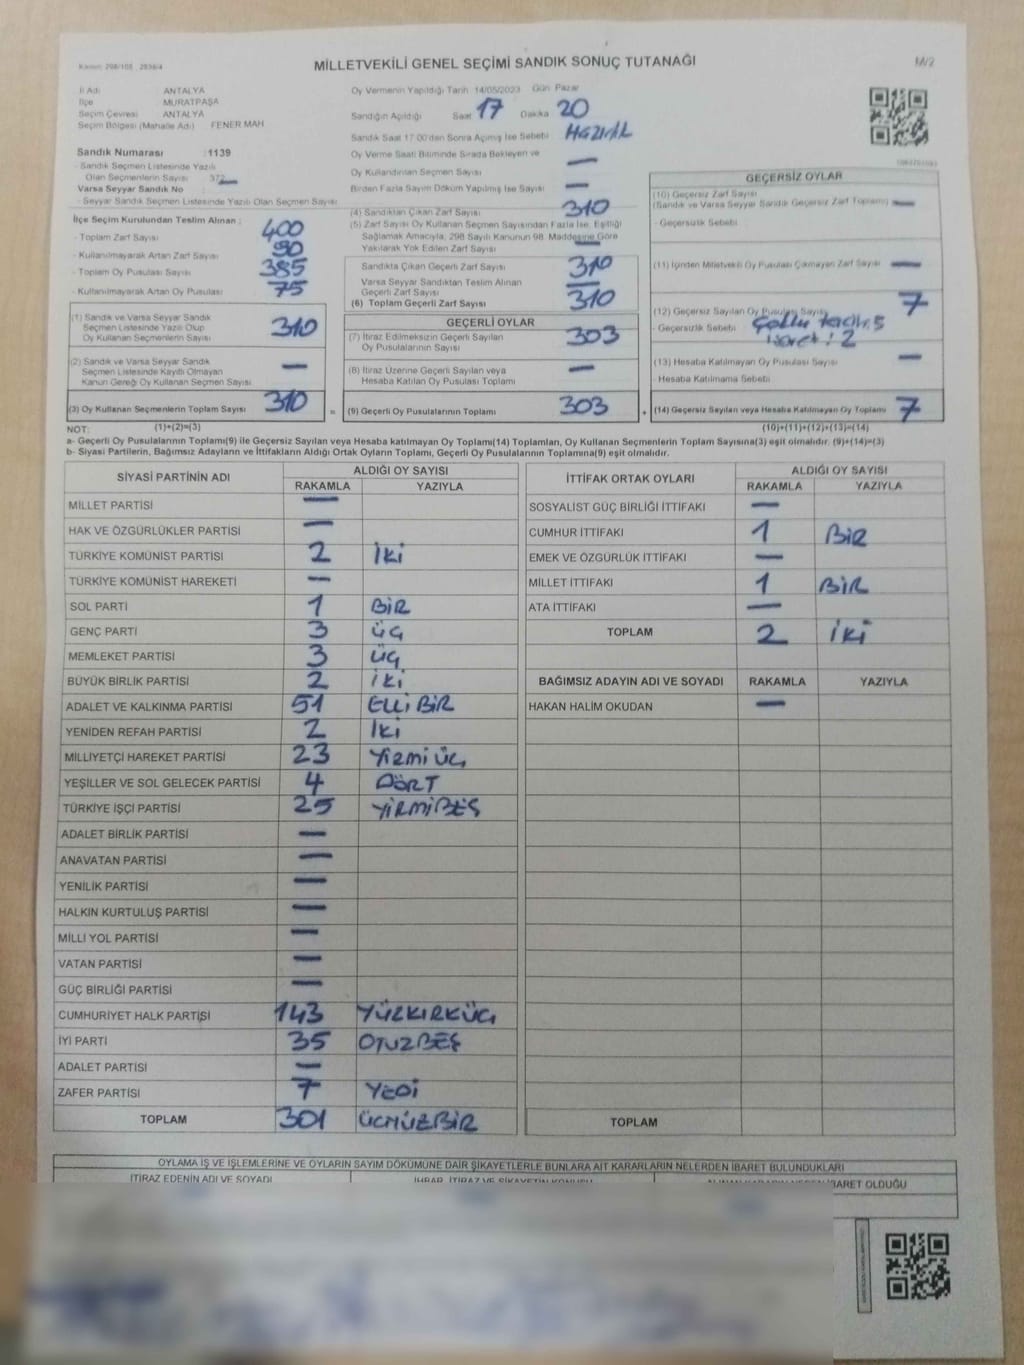 Kanun: 298/105 2839/4
MİLLETVEKİLİ GENEL SEÇİMİ SANDIK SONUÇ TUTANAĞI
M/2
İl Adı : ANTALYA
İlçe : MURATPAŞA
Seçim Çevresi : ANTALYA
Seçim Bölgesi (Mahalle Adı) : FENER MAH
Sandık Numarası : 1139
- Sandık Seçmen Listesinde Yazılı
Olan Seçmenlerin Sayısı : 372
Varsa Seyyar Sandık No :
- Seyyar Sandık Seçmen Listesinde Yazılı Olan Seçmen Sayısı
Oy Vermenin Yapıldığı Tarih 14/05/2023 Gün Pazar
Sandığın Açıldığı Saat 17 Dakika 20
Sandık Saat 17:00'den Sonra Açılmış İse Sebebi HAZIRLIK
Oy Verme Saati Bitiminde Sırada Bekleyen ve
Oy Kullandırılan Seçmen Sayısı —
Birden Fazla Sayım Döküm Yapılmış İse Sayısı —
İlçe Seçim Kurulundan Teslim Alınan :
- Toplam Zarf Sayısı 400
- Kullanılmayarak Artan Zarf Sayısı 90
- Toplam Oy Pusulası Sayısı 385
- Kullanılmayarak Artan Oy Pusulası 75
(1) Sandık ve Varsa Seyyar Sandık
Seçmen Listesinde Yazılı Olup
Oy Kullanan Seçmenlerin Sayısı 310
(2) Sandık ve Varsa Seyyar Sandık
Seçmen Listesinde Kayıtlı Olmayan
Kanun Gereği Oy Kullanan Seçmen Sayısı —
(3) Oy Kullanan Seçmenlerin Toplam Sayısı 310
(4) Sandıktan Çıkan Zarf Sayısı 310
(5) Zarf Sayısı Oy Kullanan Seçmen Sayısından Fazla İse, Eşitliği
Sağlamak Amacıyla, 298 Sayılı Kanunun 98. Maddesine Göre
Yakılarak Yok Edilen Zarf Sayısı —
Sandıkta Çıkan Geçerli Zarf Sayısı 310
Varsa Seyyar Sandıktan Teslim Alınan
Geçerli Zarf Sayısı —
(6) Toplam Geçerli Zarf Sayısı 310
GEÇERLİ OYLAR
(7) İtiraz Edilmeksizin Geçerli Sayılan
Oy Pusulalarının Sayısı 303
(8) İtiraz Üzerine Geçerli Sayılan veya
Hesaba Katılan Oy Pusulası Toplamı —
= (9) Geçerli Oy Pusulalarının Toplamı 303
GEÇERSİZ OYLAR
(10) Geçersiz Zarf Sayısı
(Sandık ve Varsa Seyyar Sandık Geçersiz Zarf Toplamı) —
- Geçersizlik Sebebi
(11) İçinden Milletvekili Oy Pusulası Çıkmayan Zarf Sayısı —
(12) Geçersiz Sayılan Oy Pusulası Sayısı 7
- Geçersizlik Sebebi Çoklu tercih: 5
işaret: 2
(13) Hesaba Katılmayan Oy Pusulası Sayısı —
- Hesaba Katılmama Sebebi
+ (14) Geçersiz Sayılan veya Hesaba Katılmayan Oy Toplamı 7
NOT: (1)+(2)=(3) (10)+(11)+(12)+(13)=(14)
a- Geçerli Oy Pusulalarının Toplamı(9) ile Geçersiz Sayılan veya Hesaba katılmayan Oy Toplamı(14) Toplamları, Oy Kullanan Seçmenlerin Toplam Sayısına(3) eşit olmalıdır. (9)+(14)=(3)
b- Siyasi Partilerin, Bağımsız Adayların ve İttifakların Aldığı Ortak Oyların Toplamı, Geçerli Oy Pusulalarının Toplamına(9) eşit olmalıdır.
SİYASİ PARTİNİN ADI ALDIĞI OY SAYISI
RAKAMLA YAZIYLA
MİLLET PARTİSİ —
HAK VE ÖZGÜRLÜKLER PARTİSİ —
TÜRKİYE KOMÜNİST PARTİSİ 2 İKİ
TÜRKİYE KOMÜNİST HAREKETİ —
SOL PARTİ 1 BİR
GENÇ PARTİ 3 ÜÇ
MEMLEKET PARTİSİ 3 ÜÇ
BÜYÜK BİRLİK PARTİSİ 2 İKİ
ADALET VE KALKINMA PARTİSİ 51 ELLİ BİR
YENİDEN REFAH PARTİSİ 2 İKİ
MİLLİYETÇİ HAREKET PARTİSİ 23 YİRMİ ÜÇ
YEŞİLLER VE SOL GELECEK PARTİSİ 4 DÖRT
TÜRKİYE İŞÇİ PARTİSİ 25 YİRMİBEŞ
ADALET BİRLİK PARTİSİ —
ANAVATAN PARTİSİ —
YENİLİK PARTİSİ —
HALKIN KURTULUŞ PARTİSİ —
MİLLİ YOL PARTİSİ —
VATAN PARTİSİ —
GÜÇ BİRLİĞİ PARTİSİ —
CUMHURİYET HALK PARTİSİ 143 YÜZKIRKÜÇ
İYİ PARTİ 35 OTUZBEŞ
ADALET PARTİSİ —
ZAFER PARTİSİ 7 YEDİ
TOPLAM 301 ÜÇYÜZBİR
İTTİFAK ORTAK OYLARI ALDIĞI OY SAYISI
RAKAMLA YAZIYLA
SOSYALİST GÜÇ BİRLİĞİ İTTİFAKI —
CUMHUR İTTİFAKI 1 BİR
EMEK VE ÖZGÜRLÜK İTTİFAKI —
MİLLET İTTİFAKI 1 BİR
ATA İTTİFAKI —
TOPLAM 2 İKİ
BAĞIMSIZ ADAYIN ADI VE SOYADI RAKAMLA YAZIYLA
HAKAN HALİM OKUDAN —
TOPLAM
OYLAMA İŞ VE İŞLEMLERİNE VE OYLARIN SAYIM DÖKÜMÜNE DAİR ŞİKAYETLERLE BUNLARA AİT KARARLARIN NELERDEN İBARET BULUNDUKLARI
İTİRAZ EDENİN ADI VE SOYADI
İBARET OLDUĞU